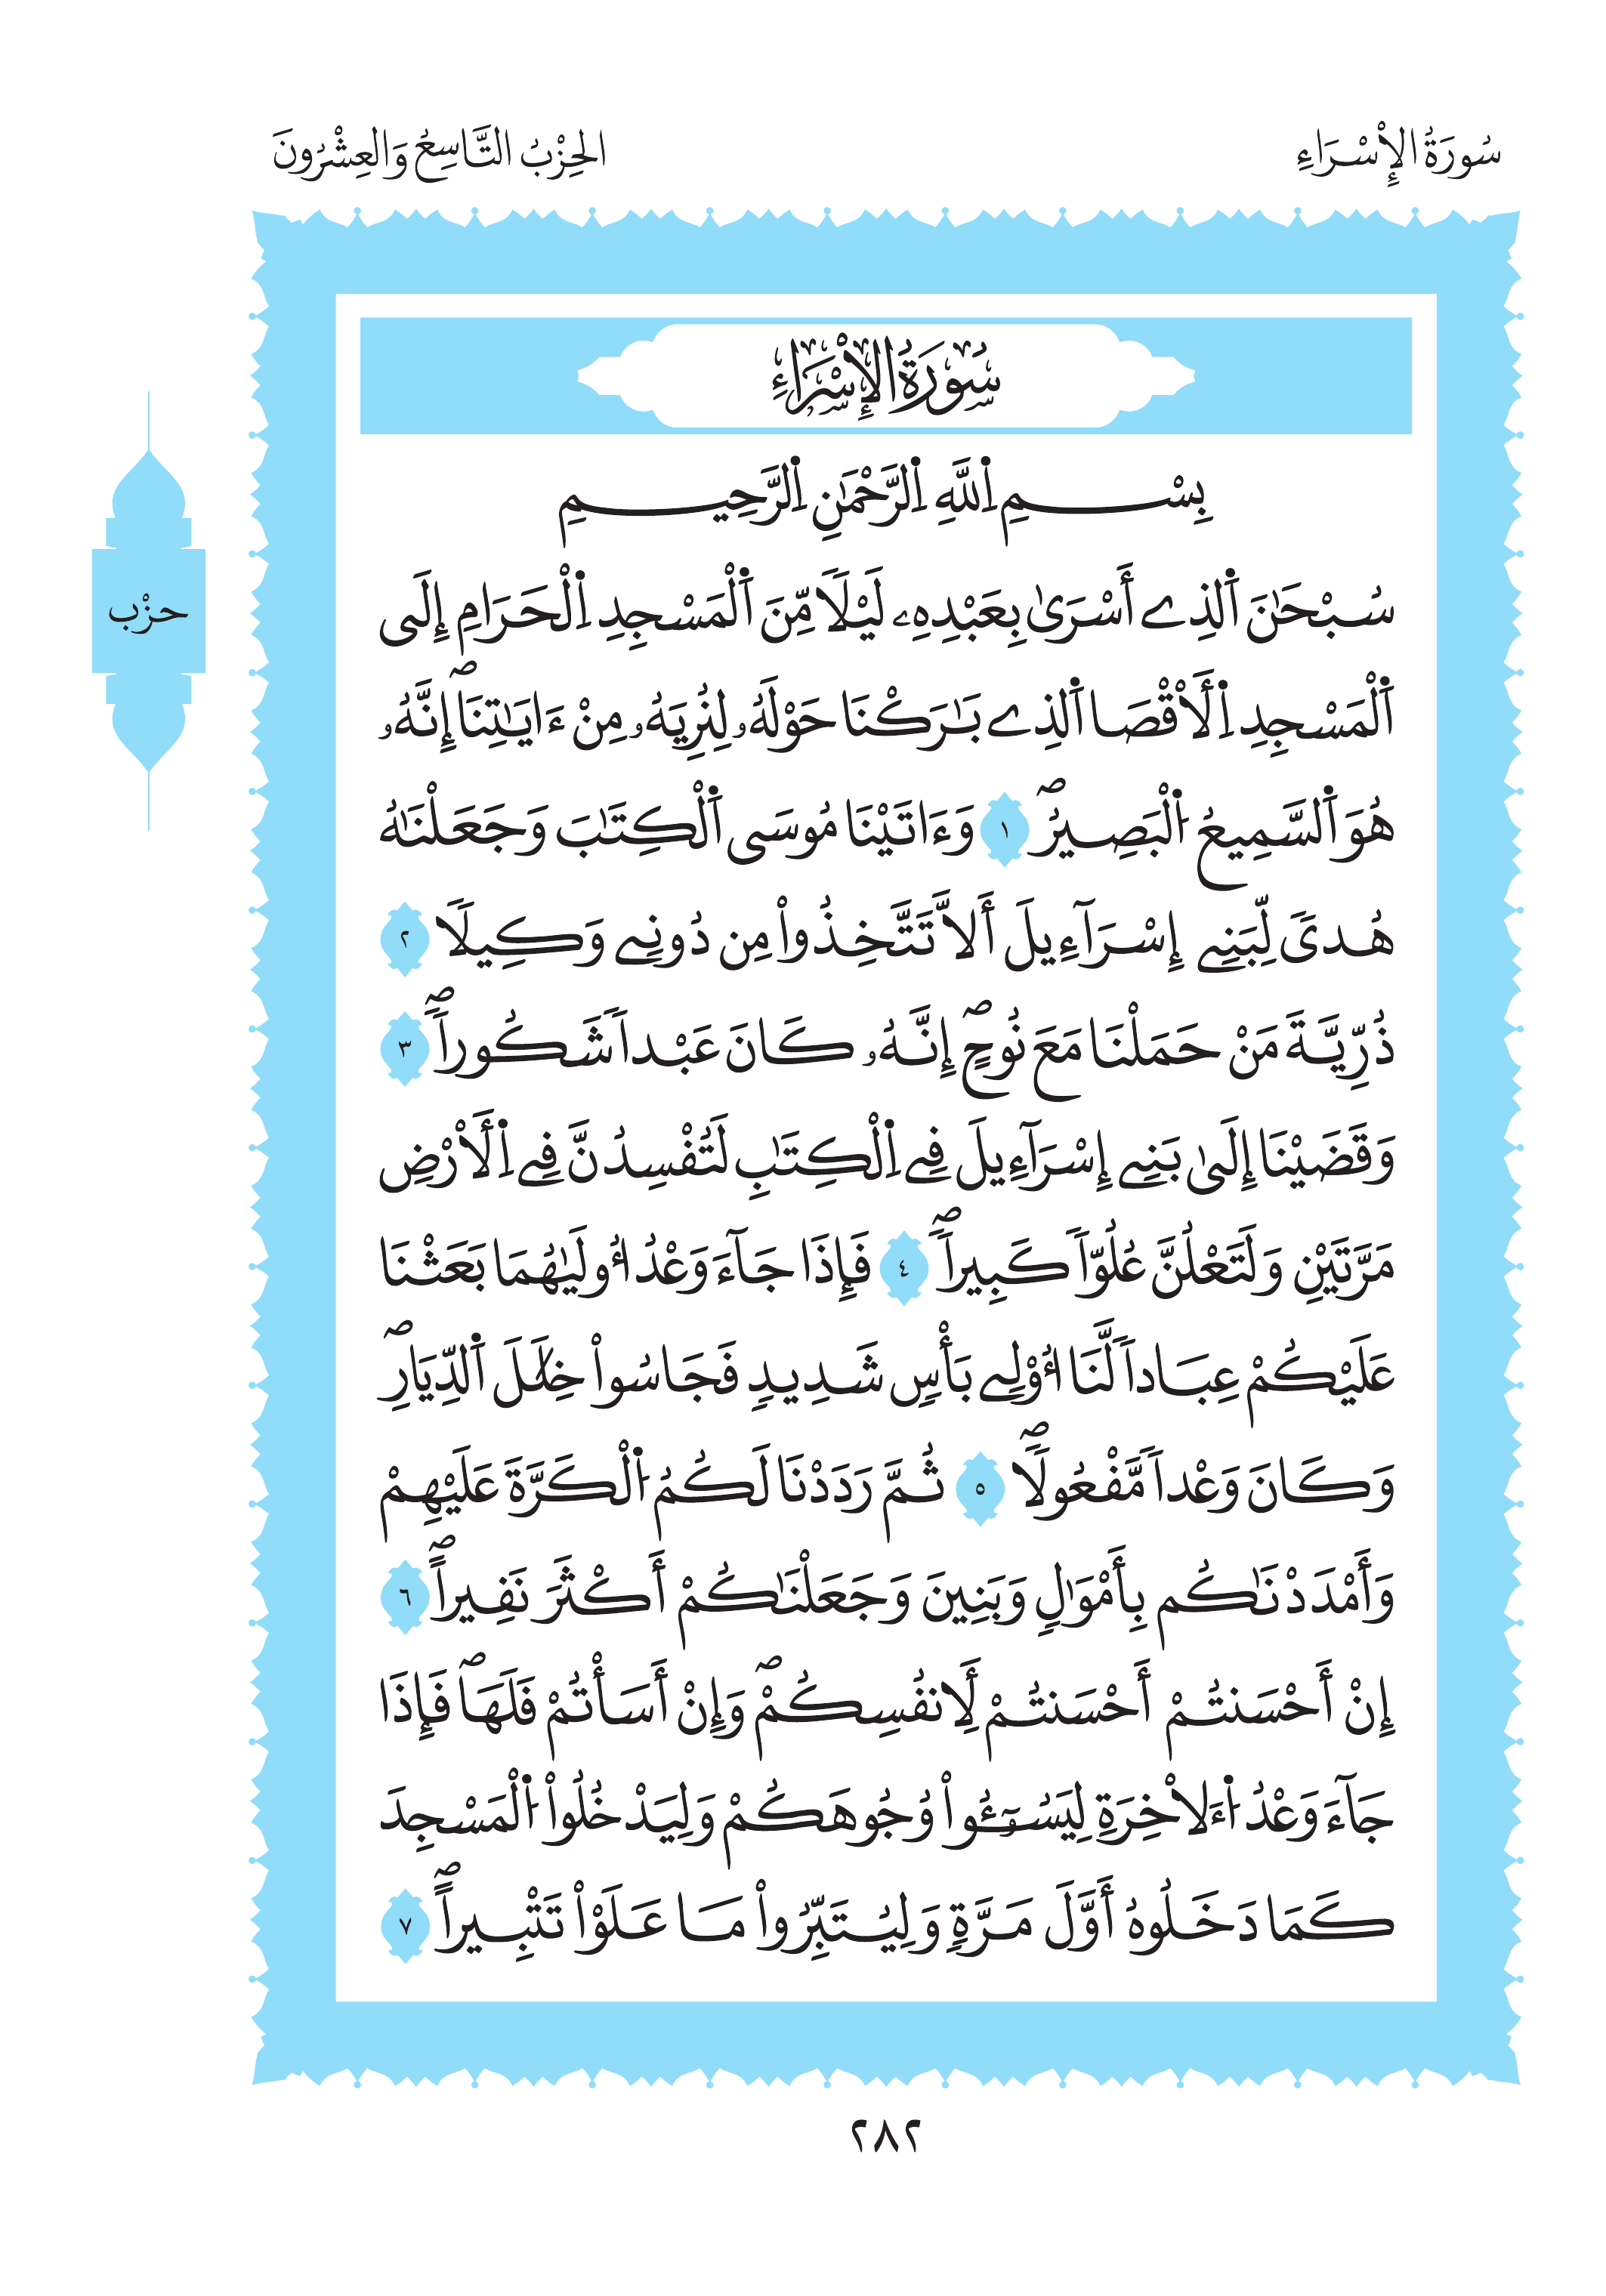 سُورَةُ الإِسْرَاءِ
الحِزْبُ التَّاسِعُ وَالعِشْرُونَ
سُورَةُ الإِسْرَاءِ
حزْب
بِسْمِ اِ۬للَّهِ اِ۬لرَّحْمَٰنِ اِ۬لرَّحِيمِ
سُبْحَٰنَ اَ۬لذِے أَسْرَىٰ بِعَبْدِهِۦ لَيْلاٗ مِّنَ اَ۬لْمَسْجِدِ اِ۬لْحَرَامِ إِلَى
اَ۬لْمَسْجِدِ اِ۬لَأقْصَا اَ۬لذِے بَٰرَكْنَا حَوْلَهُۥ لِنُرِيَهُۥ مِنْ ءَايَٰتِنَاۖ إِنَّهُۥ
هُوَ اَ۬لسَّمِيعُ اُ۬لْبَصِيرُۖ ١ وَءَاتَيْنَا مُوسَى اَ۬لْكِتَٰبَ وَجَعَلْنَٰهُ
هُدىٗ لِّبَنِے إِسْرَآءِيلَ أَلاَّ تَتَّخِذُواْ مِن دُونِے وَكِيلاٗ ٢
ذُرِّيَّةَ مَنْ حَمَلْنَا مَعَ نُوحٍۖ إِنَّهُۥ كَانَ عَبْداٗ شَكُوراٗۖ ٣
وَقَضَيْنَا إِلَىٰ بَنِے إِسْرَآءِيلَ فِے اِ۬لْكِتَٰبِ لَتُفْسِدُنَّ فِے اِ۬لَارْضِ
مَرَّتَيْنِ وَلَتَعْلُنَّ عُلُوّاٗ كَبِيراٗۖ ٤ فَإِذَا جَآءَ وَعْدُ أُولَيٰهُمَا بَعَثْنَا
عَلَيْكُمْ عِبَاداٗ لَّنَا أُوْلِے بَأْسٖ شَدِيدٖ فَجَاسُواْ خِلَٰلَ اَ۬لدِّيَارِۖ
وَكَانَ وَعْداٗ مَّفْعُولاٗۖ ٥ ثُمَّ رَدَدْنَا لَكُمُ اُ۬لْكَرَّةَ عَلَيْهِمْ
وَأَمْدَدْنَٰكُم بِأَمْوَٰلٖ وَبَنِينَ وَجَعَلْنَٰكُمْ أَكْثَرَ نَفِيراًۖ ٦
إِنْ أَحْسَنتُمْ أَحْسَنتُمْ لَأِنفُسِكُمْۖ وَإِنْ أَسَأْتُمْ فَلَهَاۖ فَإِذَا
جَآءَ وَعْدُ اُ۬ءَلاْخِرَةِ لِيَسُـُٔواْ وُجُوهَكُمْ وَلِيَدْخُلُواْ اُ۬لْمَسْجِدَ
كَمَا دَخَلُوهُ أَوَّلَ مَرَّةٖ وَلِيُتَبِّرُواْ مَا عَلَوْاْ تَتْبِيراًۖ ٧
٢٨٢